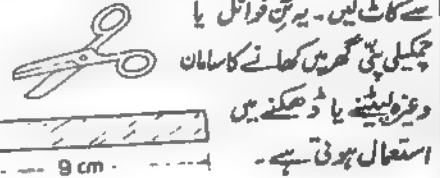 سے کاٹ لیں۔ یہ ٹِن فوائل یا
چمکیلی پنّی گھر میں کھانے کا سامان
وغیرہ لپیٹنے یا ڈھکنے میں
استعمال ہوتی ہے۔
9 cm